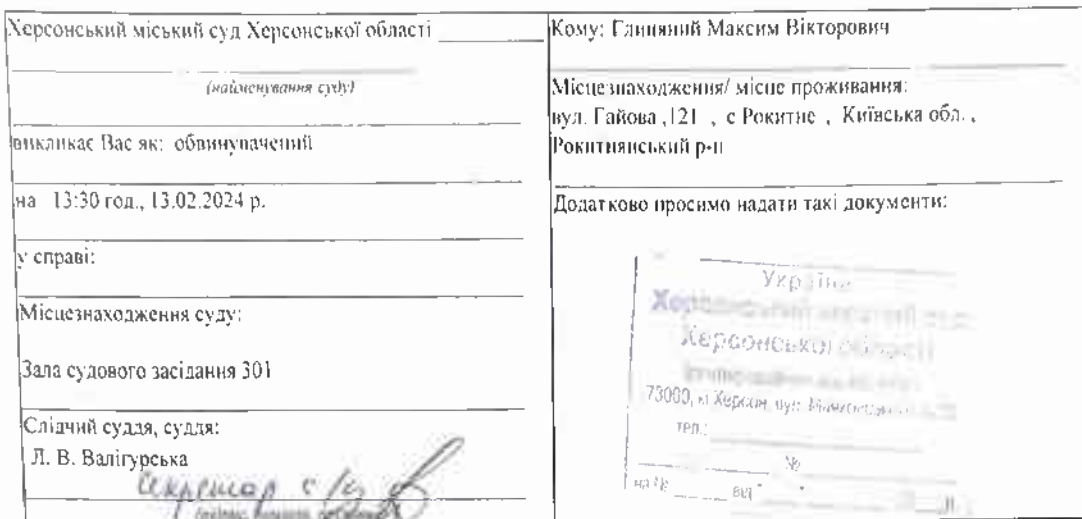 Херсонський міський суд Херсонської області
(найменування суду)
викликає Вас як: обвинувачений
на 13:30 год., 13.02.2024 р.
у справі:
Місцезнаходження суду:
Зала судового засідання 301
Слідчий суддя, суддя:
Л. В. Валігурська
Секретар с/з
Кому: Глиняний Максим Вікторович
Місцезнаходження/ місце проживання:
вул. Гайова ,121 , с Рокитне , Київська обл. ,
Рокитнянський р-н
Додатково просимо надати такі документи:
Україна
Херсонський міський суд
Херсонської області
73000, м Херсон, вул.
тел.:
№
на № від